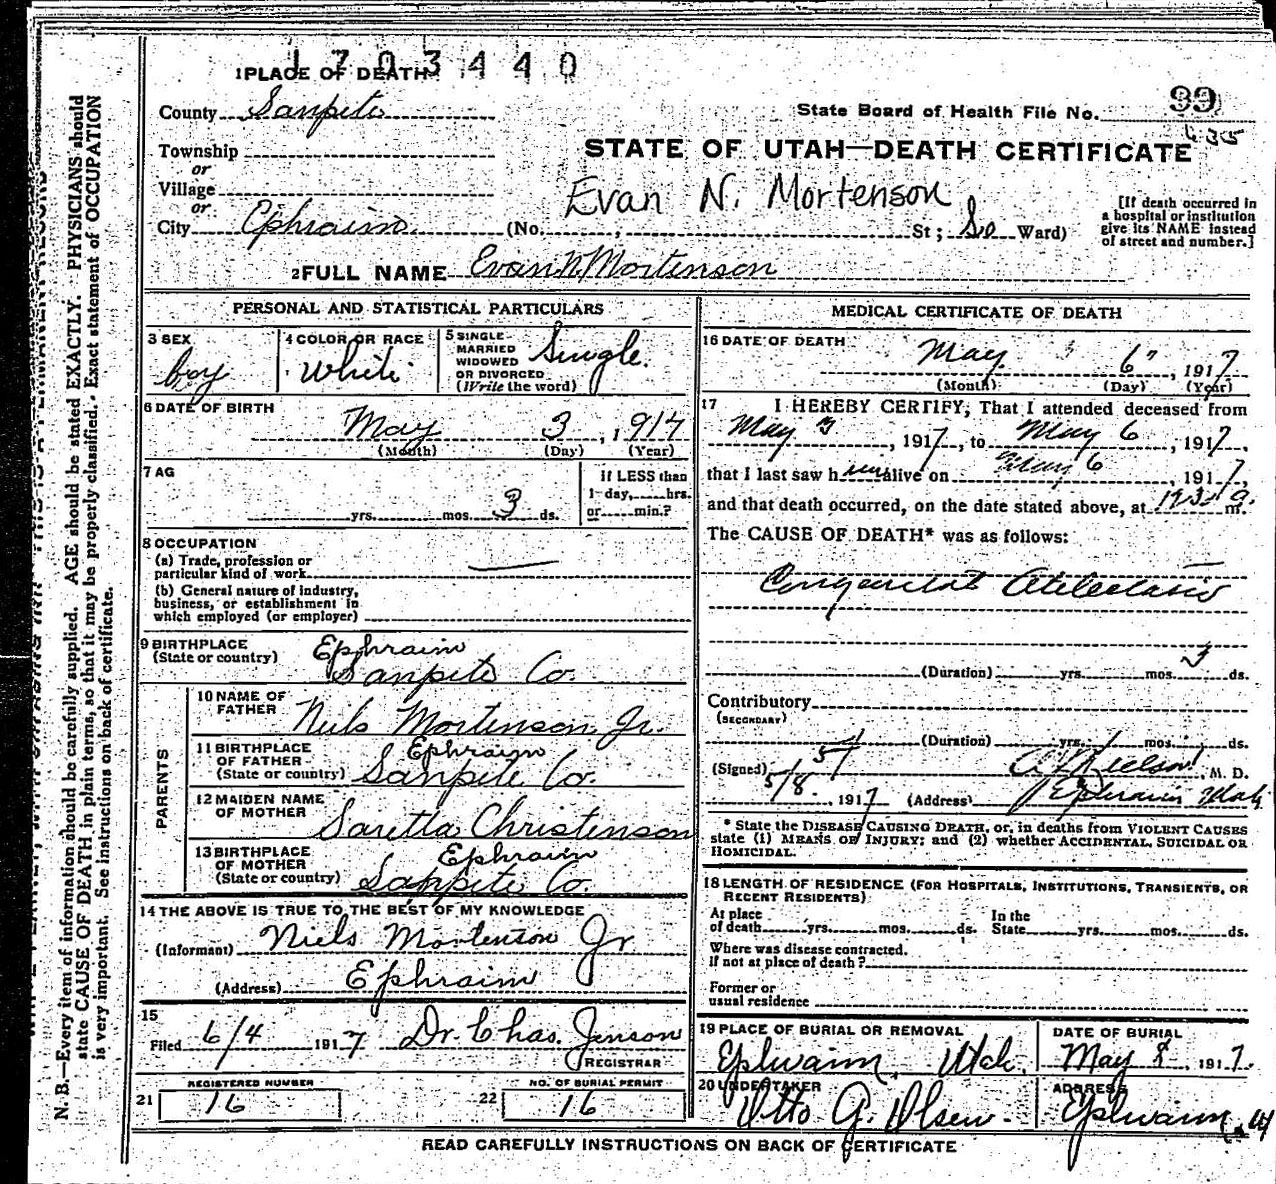 1703440
1 PLACE OF DEATH
County Sanpete
State Board of Health File No. 99
635
Township
or
Village
or
City Ephraim
STATE OF UTAH—DEATH CERTIFICATE
Evan N. Mortenson
(No. , St; So Ward)
[If death occurred in
a hospital or institution
give its NAME instead
of street and number.]
2 FULL NAME Evan N Mortenson
PERSONAL AND STATISTICAL PARTICULARS
3 SEX
boy
4 COLOR OR RACE
White
5 SINGLE
MARRIED
WIDOWED
OR DIVORCED
(Write the word)
Single.
6 DATE OF BIRTH
May 3, 1917
(Month) (Day) (Year)
7 AG
yrs. mos. 3 ds.
if LESS than
1 day, hrs.
or min.?
8 OCCUPATION
(a) Trade, profession or
particular kind of work
(b) General nature of industry,
business, or establishment in
which employed (or employer)
9 BIRTHPLACE
(State or country)
Ephraim
Sanpete Co.
PARENTS
10 NAME OF
FATHER
Niels Mortenson Jr.
11 BIRTHPLACE
OF FATHER
(State or country)
Ephraim
Sanpete Co.
12 MAIDEN NAME
OF MOTHER
Saretta Christenson
13 BIRTHPLACE
OF MOTHER
(State or country)
Ephraim
Sanpete Co.
14 THE ABOVE IS TRUE TO THE BEST OF MY KNOWLEDGE
(Informant) Niels Mortenson Jr
(Address) Ephraim
15
Filed 6/4 1917 Dr. Chas. Jenson
REGISTRAR
REGISTERED NUMBER
21 16
NO. OF BURIAL PERMIT
22 16
MEDICAL CERTIFICATE OF DEATH
16 DATE OF DEATH
May 6, 1917
(Month) (Day) (Year)
17 I HEREBY CERTIFY, That I attended deceased from
May 3, 1917, to May 6, 1917,
that I last saw h alive on May 6 1917,
and that death occurred, on the date stated above, at m.
The CAUSE OF DEATH* was as follows:
Congenital Atelectasis
(Duration) yrs. mos. 3 ds.
Contributory
(SECONDARY)
(Duration) yrs. mos. ds.
(Signed) M. D.
5/8, 1917 (Address) Ephraim Utah
* State the DISEASE CAUSING DEATH, or, in deaths from VIOLENT CAUSES
state (1) MEANS OF INJURY; and (2) whether ACCIDENTAL, SUICIDAL OR
HOMICIDAL.
18 LENGTH OF RESIDENCE (FOR HOSPITALS, INSTITUTIONS, TRANSIENTS, OR
RECENT RESIDENTS)
At place
of death yrs. mos. ds.
In the
State yrs. mos. ds.
Where was disease contracted.
If not at place of death?
Former or
usual residence
19 PLACE OF BURIAL OR REMOVAL
Ephraim, Utah.
DATE OF BURIAL
May 8, 1917.
20 UNDERTAKER
Otto A. Olsen.
ADDRESS
Ephraim, U
READ CAREFULLY INSTRUCTIONS ON BACK OF CERTIFICATE
N. B.—Every item of information should be carefully supplied. AGE should be stated EXACTLY. PHYSICIANS should
state CAUSE OF DEATH in plain terms, so that it may be properly classified. Exact statement of OCCUPATION
is very important. See instructions on back of certificate.